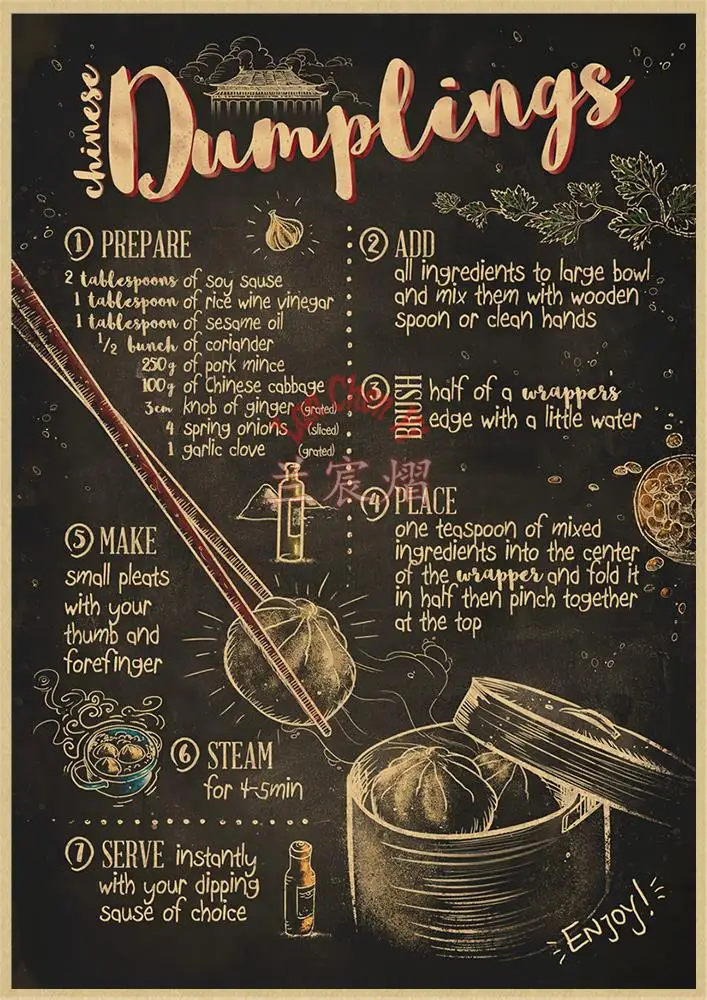 chinese
Dumplings
1 PREPARE
2 tablespoons of soy sause
1 tablespoon of rice wine vinegar
1 tablespoon of sesame oil
1/2 bunch of coriander
250g of pork mince
100g of Chinese cabbage
3cm knob of ginger (grated)
4 spring onions (sliced)
1 garlic clove (grated)
2 ADD
all ingredients to large bowl
and mix them with wooden
spoon or clean hands
3 BRUSH half of a wrappers
edge with a little water
4 PLACE
one teaspoon of mixed
ingredients into the center
of the wrapper and fold it
in half then pinch together
at the top
5 MAKE
small pleats
with your
thumb and
forefinger
6 STEAM
for 4-5min
7 SERVE instantly
with your dipping
sause of choice
Enjoy!
宸熠